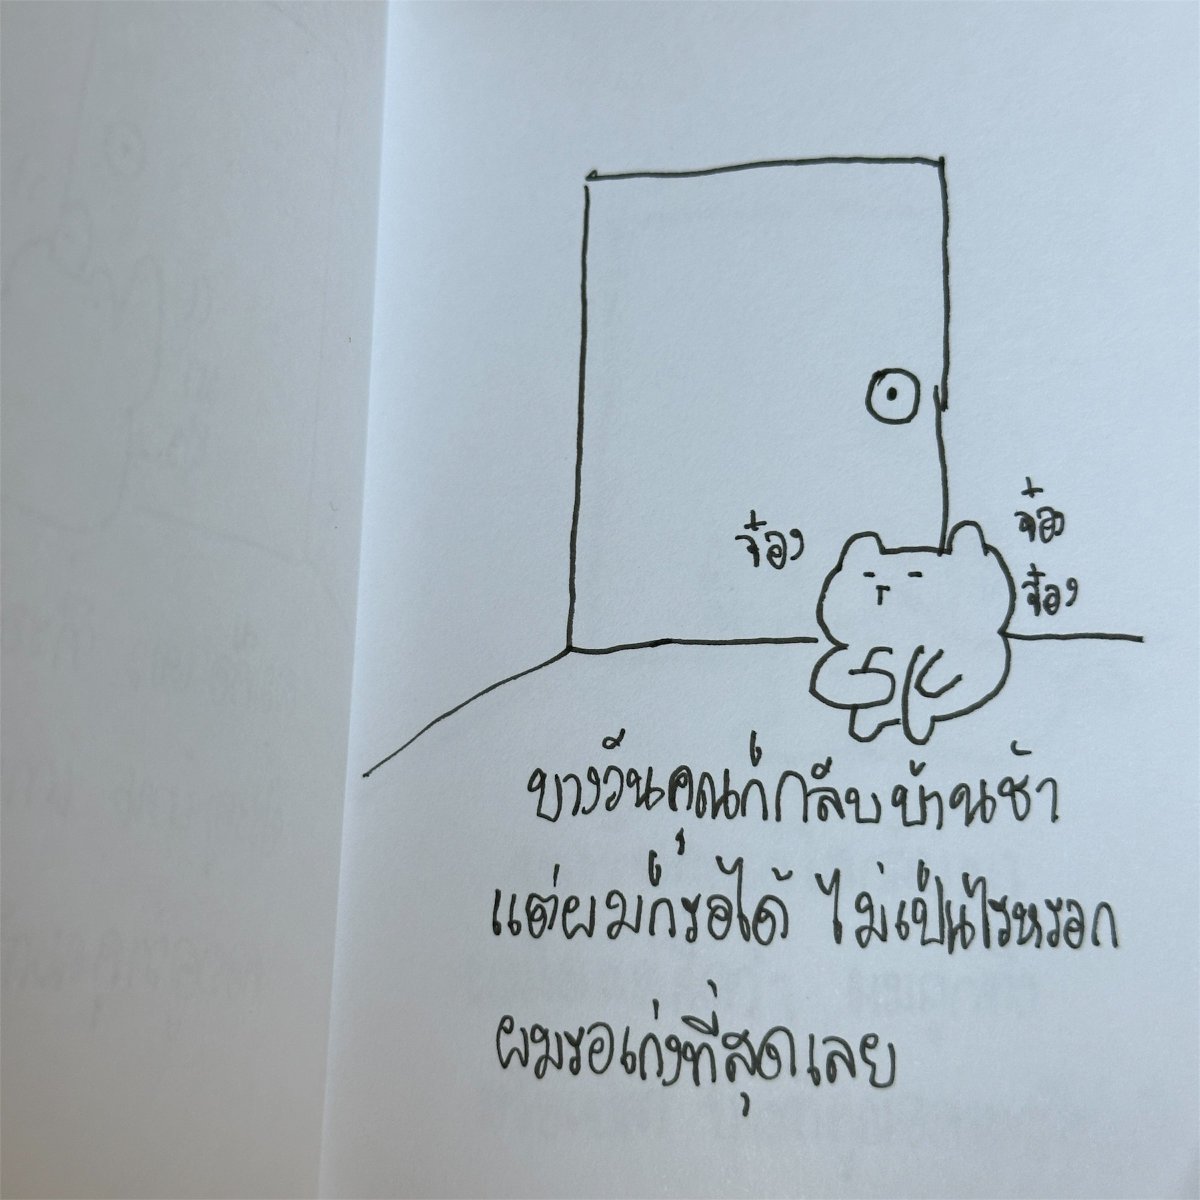 จ้อง
จ้อง
จ้อง
บางวันคุณก็กลับบ้านช้า
แต่ผมก็รอได้ ไม่เป็นไรหรอก
ผมรอเก่งที่สุดเลย